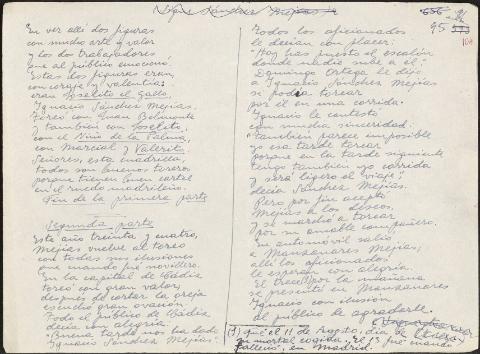 Ignacio Sánchez Mejías
656
95
104
En ver allí dos figuras
con mucho arte y valor
y los dos trabajadores
que al público emocionó.
Estas dos figuras eran,
con coraje y valentía:
eran Joselito el Gallo,
Ignacio Sánchez Mejías.
Toreó con Juan Belmonte
y también con Joselito,
con el Niño de la Palma,
con Marcial y Valerito.
Señores, esta cuadrilla,
todos son buenos toreros
porque tienen buen cartel
en el ruedo madrileño.
Fin de la primera parte
Segunda parte
Este año treinta y cuatro,
Mejías vuelve al toreo
con todas sus ilusiones
que cuando fue novillero.
En la capital de Cádiz
toreó con gran valor;
después de cortar la oreja
escuchó gran ovación.
Todo el público de Cádiz
decía con alegría:
"Buena tarde nos ha dado
Ignacio Sánchez Mejías."
Todos los aficionados
le decían con placer:
"Hoy has puesto el escalón
donde nadie sube a él."
Domingo Ortega le dijo
a Ignacio Sánchez Mejías
se podía torear
por él en una corrida.
Ignacio le contestó
con mucha sinceridad:
"También parece imposible
yo esa tarde torear
porque en la tarde siguiente
tengo también yo corrida
y será ligero el viaje",
decía Sánchez Mejías.
Pero por fin aceptó
Mejías a los deseos,
y se marchó a torear
por su amable compañero.
En automóvil salió
a Manzanares Mejías;
allí los aficionados
le esperan con alegría.
El trece por la mañana
se presentó en Manzanares
Ignacio con ilusión
al público de agradarle.
(1) que el 11 de Agosto, día de
su mortal cogida. El 13 fue cuando
falleció, en Madrid.